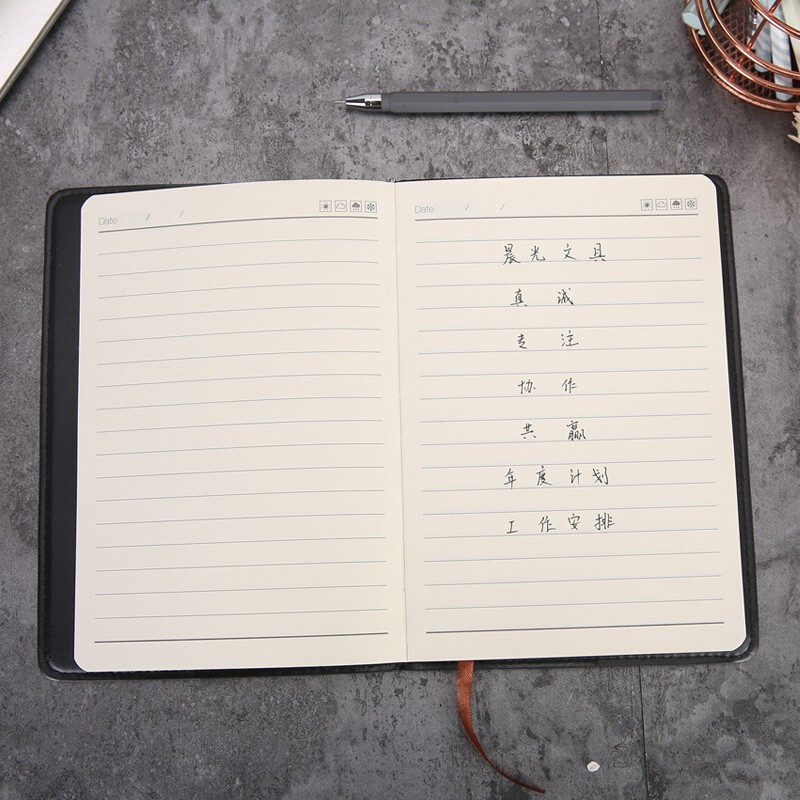 Date / /
Date / /
晨光文具
真诚
专注
协作
共赢
年度计划
工作安排